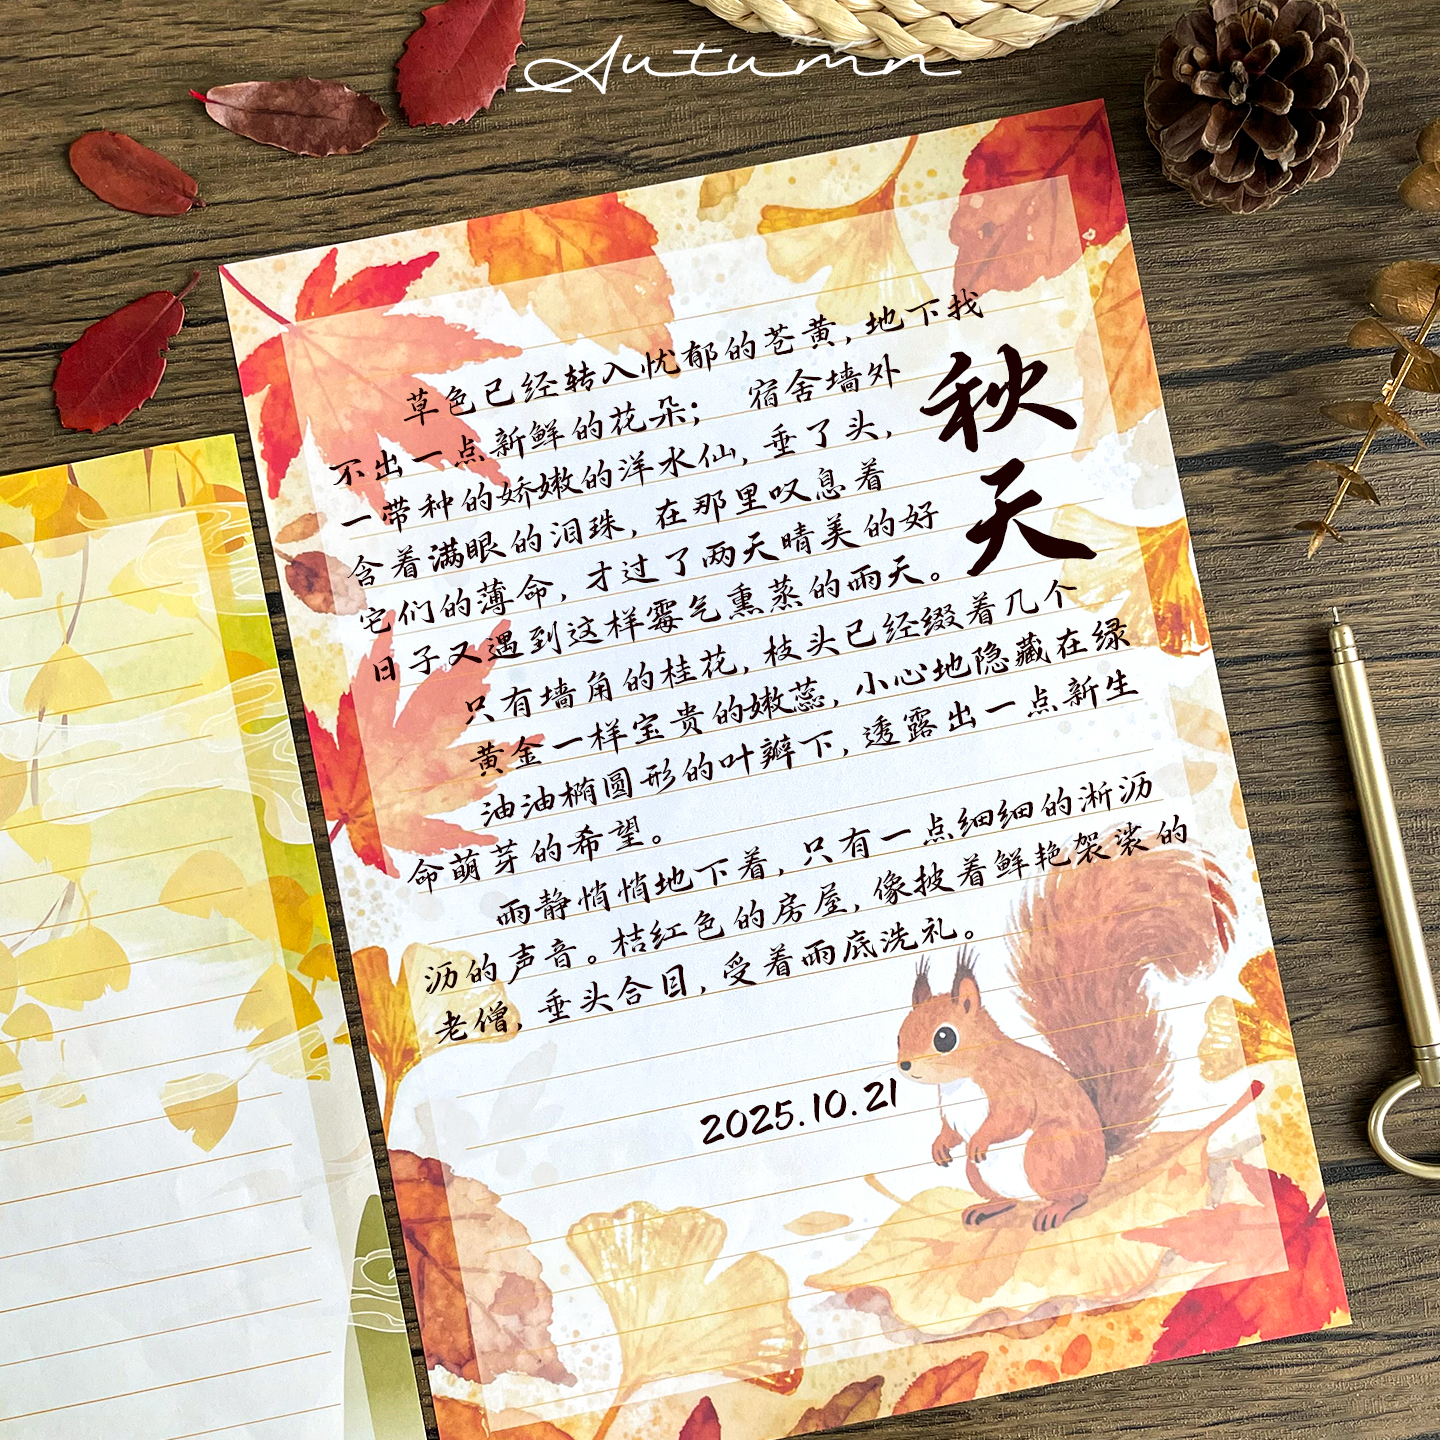 Autumn
秋天
草色已经转入忧郁的苍黄，地下找
不出一点新鲜的花朵； 宿舍墙外
一带种的娇嫩的洋水仙，垂了头，
含着满眼的泪珠，在那里叹息着
它们的薄命，才过了两天晴美的好
日子又遇到这样霉气熏蒸的雨天。
只有墙角的桂花，枝头已经缀着几个
黄金一样宝贵的嫩蕊，小心地隐藏在绿
油油椭圆形的叶瓣下，透露出一点新生
命萌芽的希望。
雨静悄悄地下着，只有一点细细的淅沥
沥的声音。桔红色的房屋，像披着鲜艳袈裟的
老僧，垂头合目，受着雨底洗礼。
2025.10.21